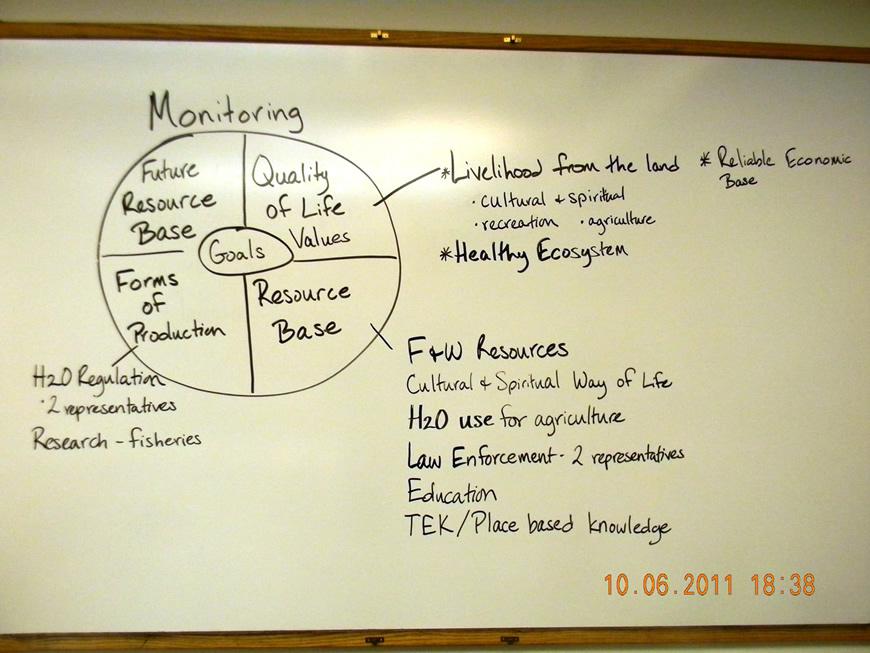 Monitoring
Future
Resource
Base
Quality
of Life
Values
Goals
Forms
of
Production
Resource
Base
*Livelihood from the land
• cultural & spiritual
• recreation • agriculture
*Healthy Ecosystem
* Reliable Economic
Base
H2O Regulation
• 2 representatives
Research - fisheries
F&W Resources
Cultural & Spiritual Way of Life
H2O use for agriculture
Law Enforcement - 2 representatives
Education
TEK/Place based knowledge
10.06.2011 18:38